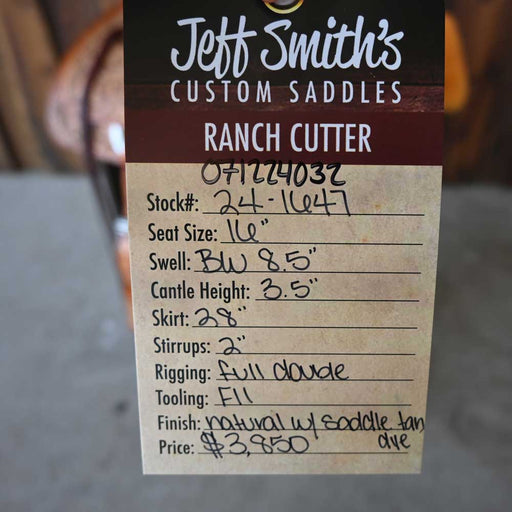 Jeff Smith's
CUSTOM SADDLES
RANCH CUTTER
071224032
Stock#: 24-1647
Seat Size: 16"
Swell: BW 8.5"
Cantle Height: 3.5"
Skirt: 28"
Stirrups: 2"
Rigging: full double
Tooling: F11
Finish: natural w/ saddle tan
dye
Price: $3,850